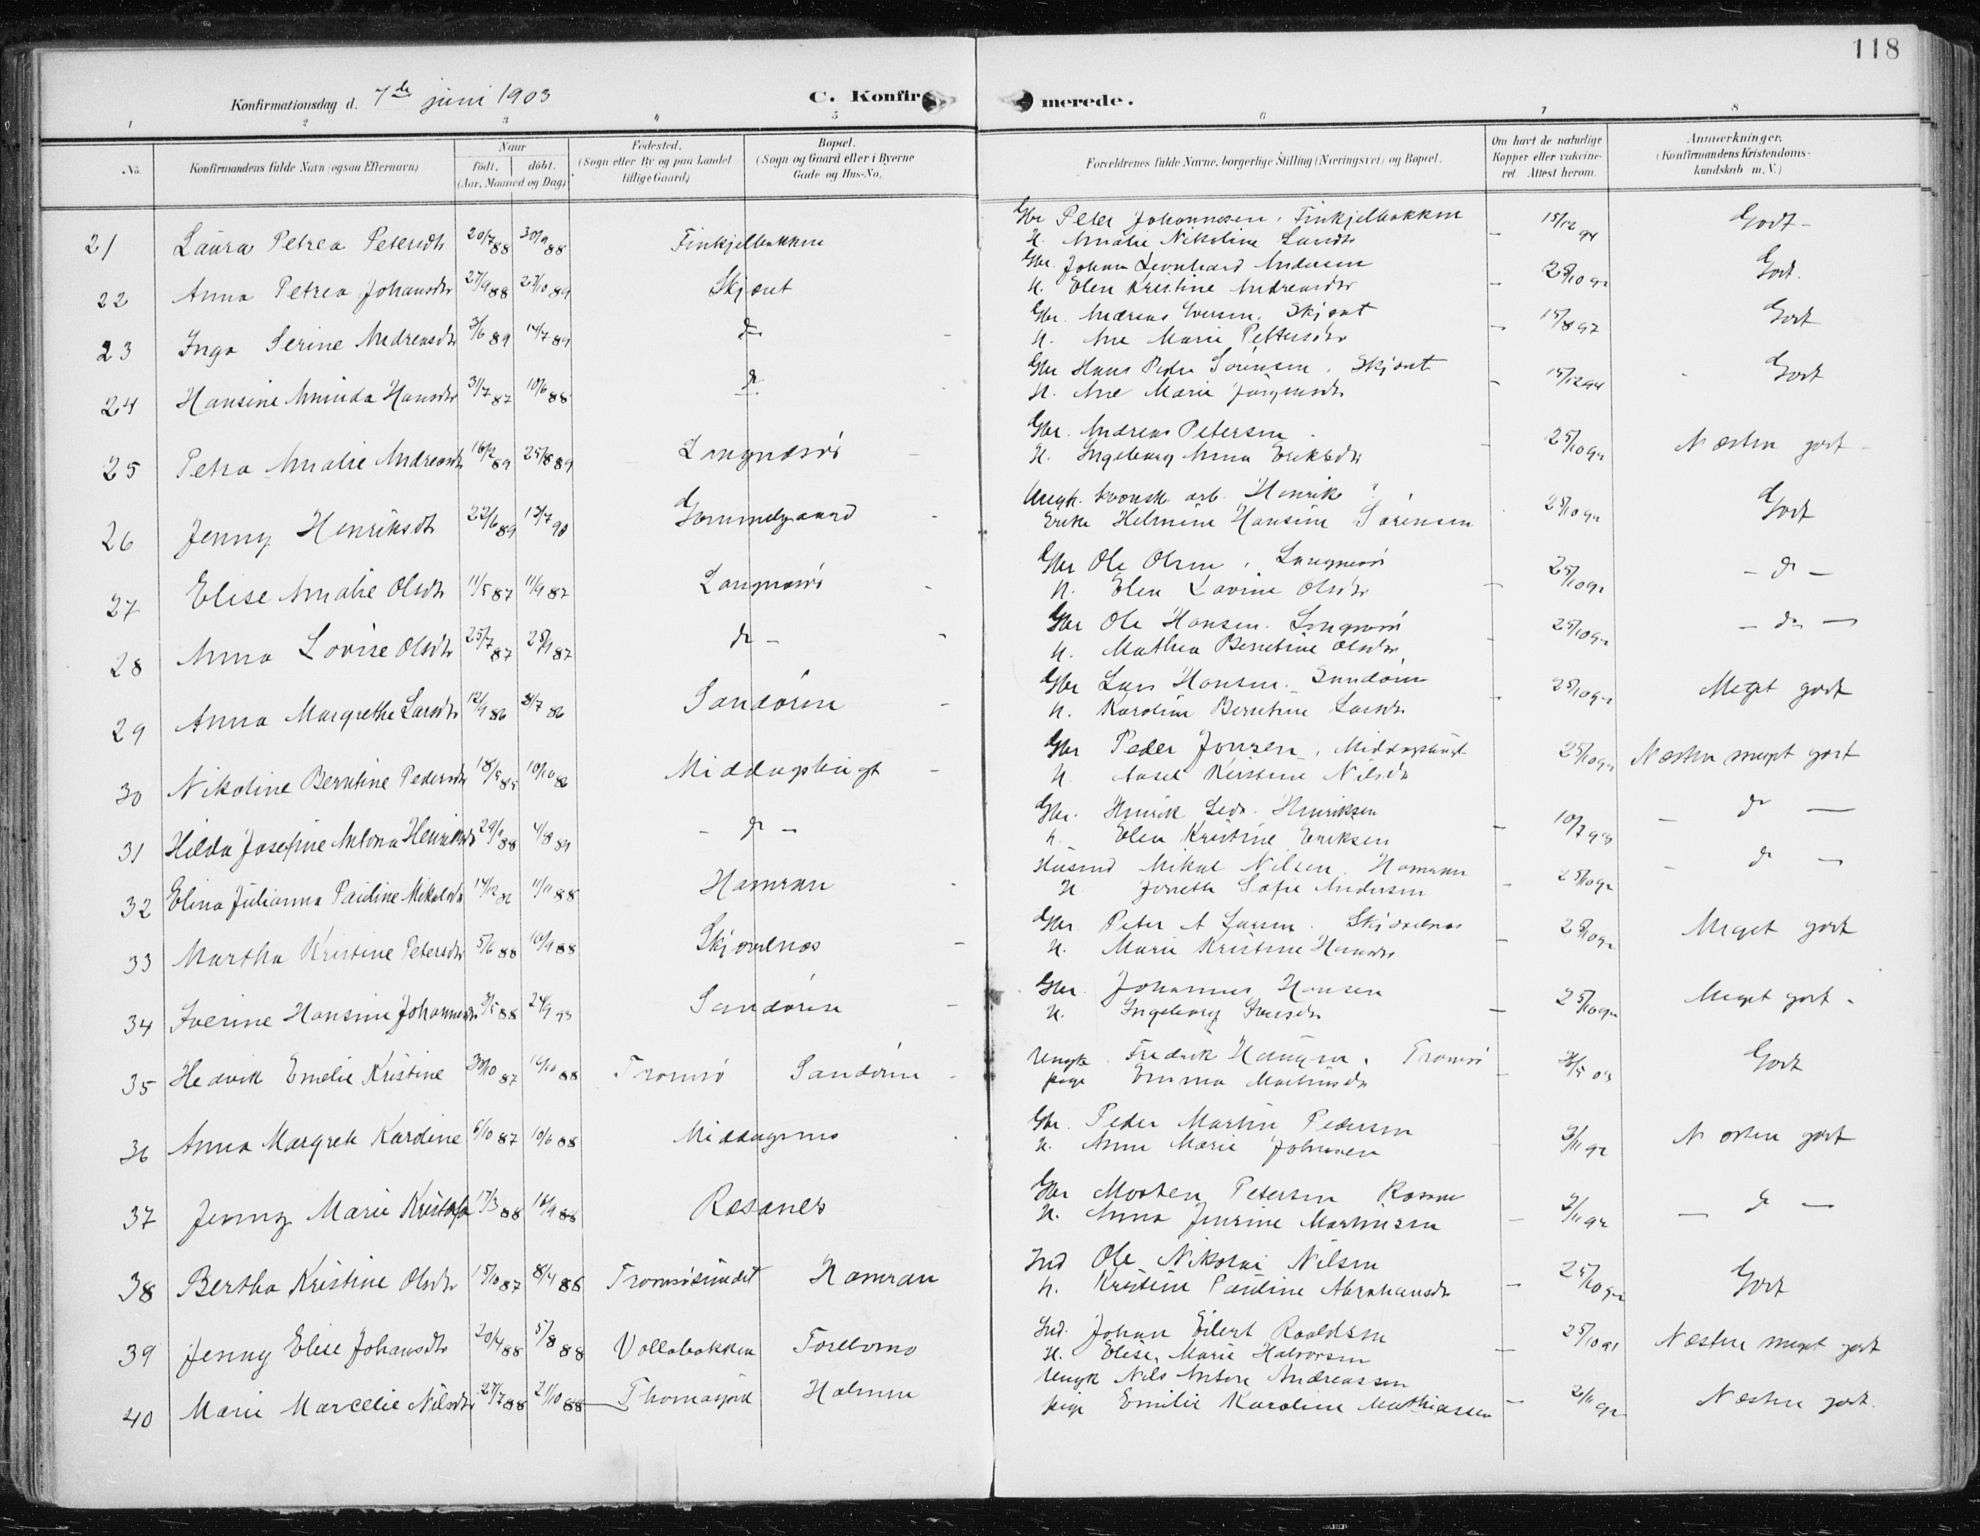 118
Konfirmationsdag d. 7de juni 1903
C. Konfir merede.
1 2 3 4 5 6 7 8
No. Konfirmandens fulde Navn (ogsaa Efternavn) Naar født. døbt. (Aar, Maaned og Dag) Fødested. (Sogn eller By og paa Landet tillige Gaard) Bopæl. (Sogn og Gaard eller i Byerne Gade og Hus-No. Forældrenes fulde Navne, borgerlige Stilling (Næringsvei) og Bopæl. Om havt de naturlige Kopper eller vakcineret. Attest herom. Anmærkninger. (Konfirmandens Kristendomskundskab m. V.)
21 Laura Petrea Petersdtr 20/7 88 30/9 88 Finkjelbakken Gbr Peter Johannesen. Finkjelbakken 15/12 94 Godt
H. Amalie Nikoline Larsdtr
22 Anna Petrea Johansdtr 27/9 88 27/10 89 Skjaat Gbr. Johan Leonhard Andersen 25/10 92 Godt.
H. Elen Kristine Andreasdtr
23 Inga Serine Andreasdtr 3/6 89 14/7 89 do Gbr. Andreas Iversen. Skjaat 15/8 97 Godt
H. Ane Marie Pettersdtr
24 Hansine Aminda Hansdtr 31/7 87 10/6 88 do Gbr Hans Peder Sørensen. Skjaat 15/12 94 Godt
H. Ane Marie Jørgensdtr
25 Petra Amalie Andreasdtr 16/2 89 25/8 89 Langnæsør Gbr. Andreas Petersen 25/10 92 Næsten godt
H. Ingeborg Anna Eriksdtr
26 Jenny Henriksdtr 22/6 89 13/7 90 Gammelgaard Ungk. kvænsk arb. Henrik ? 25/10 92 Godt
Enke Helmine Hansine Sørensen
27 Elise Amalie Olsdtr 11/5 87 11/9 87 Langnæsør Gbr Ole Olsen, Langnæsør 25/10 92 – do –
H. Elen Lovine Olsdtr
28 Anna Lovise Olsdtr 25/7 87 25/9 87 do – Gbr Ole Hansen. Langnæsør 25/10 92 – do –
H. Mathea Berntine Olsdtr
29 Anna Margrethe Larsdtr 12/4 86 /7 86 Sandøren Gbr Lars Hansen. Sandøren 25/10 92 Meget godt
H. Karoline Berntine Larsdtr
30 Nikoline Berntine Pedersdtr 18/5 85 10/10 86 Middagsbugt Gbr Peder Jonsen, Middagsbugt 25/10 92 Næsten meget godt
H. Kirstine Nilsdtr
31 Hilda Josefine Antona Henriksdtr 29/9 88 4/8 89 – do – Gbr. Henrik Henriksen 10/7 93 – do –
H. Elen Kristine Eriksen
32 Elina Julianna Pauline Mikalsdtr 14/12 86 11/11 88 Hamran Husmd Mikal Nilsen. Hamran 25/10 92 – do –
H Jonette Sofie Andersen
33 Martha Kristine Petersdtr 5/6 88 16/9 88 Skjælnes Gbr. Peter A Larsen. Skjælnes 25/10 92 Meget godt
H. Marie Kristine Hansdtr
34 Iverine Hansine Johannesdtr /5 88 24/9 Sandøren Gbr. Johannes Hansen 25/10 92 Meget godt.
H. Ingeborg Larsdtr
35 Hedvik Emelie Kristine 30/10 87 16/10 88 Tromsø Sandøren Ungk. Fredrik Hansen. Tromsø /5 03 Godt
pige Emma
36 Anna Margrete Kardine 6/10 87 10/6 88 Middagsnes Gbr. Peder Martin Pedersen 2/11 92 Næsten godt
H. Anne Marie Johnsen
37 Jenny Marie 17/3 88 16/9 88 Rasanes Gbr Morten Petersen 2/11 92 – do –
H. Anna Jensine Martinsen
38 Bertha Kristine Olsdtr 15/10 87 8/4 88 Tromsøsundet Hamran Ind Ole Nikolai Nilsen 25/10 92 Godt
H. Kristine Pauline Abrahamsdtr
39 Jenny Elise Johansdtr 20/4 88 5/8 88 Vollabakken Ind. Johan Eilert Roaldsen 25/10 91 Næsten meget godt
H. Elise Marie Halvorsen
40 Marie Marcelie Nilsdtr 27/7 88 21/10 88 Thomasjord Holmen Ungk Nils Anton Andreassen 2/11 92 Næsten godt.
pige Emilie Karoline Mathiassen